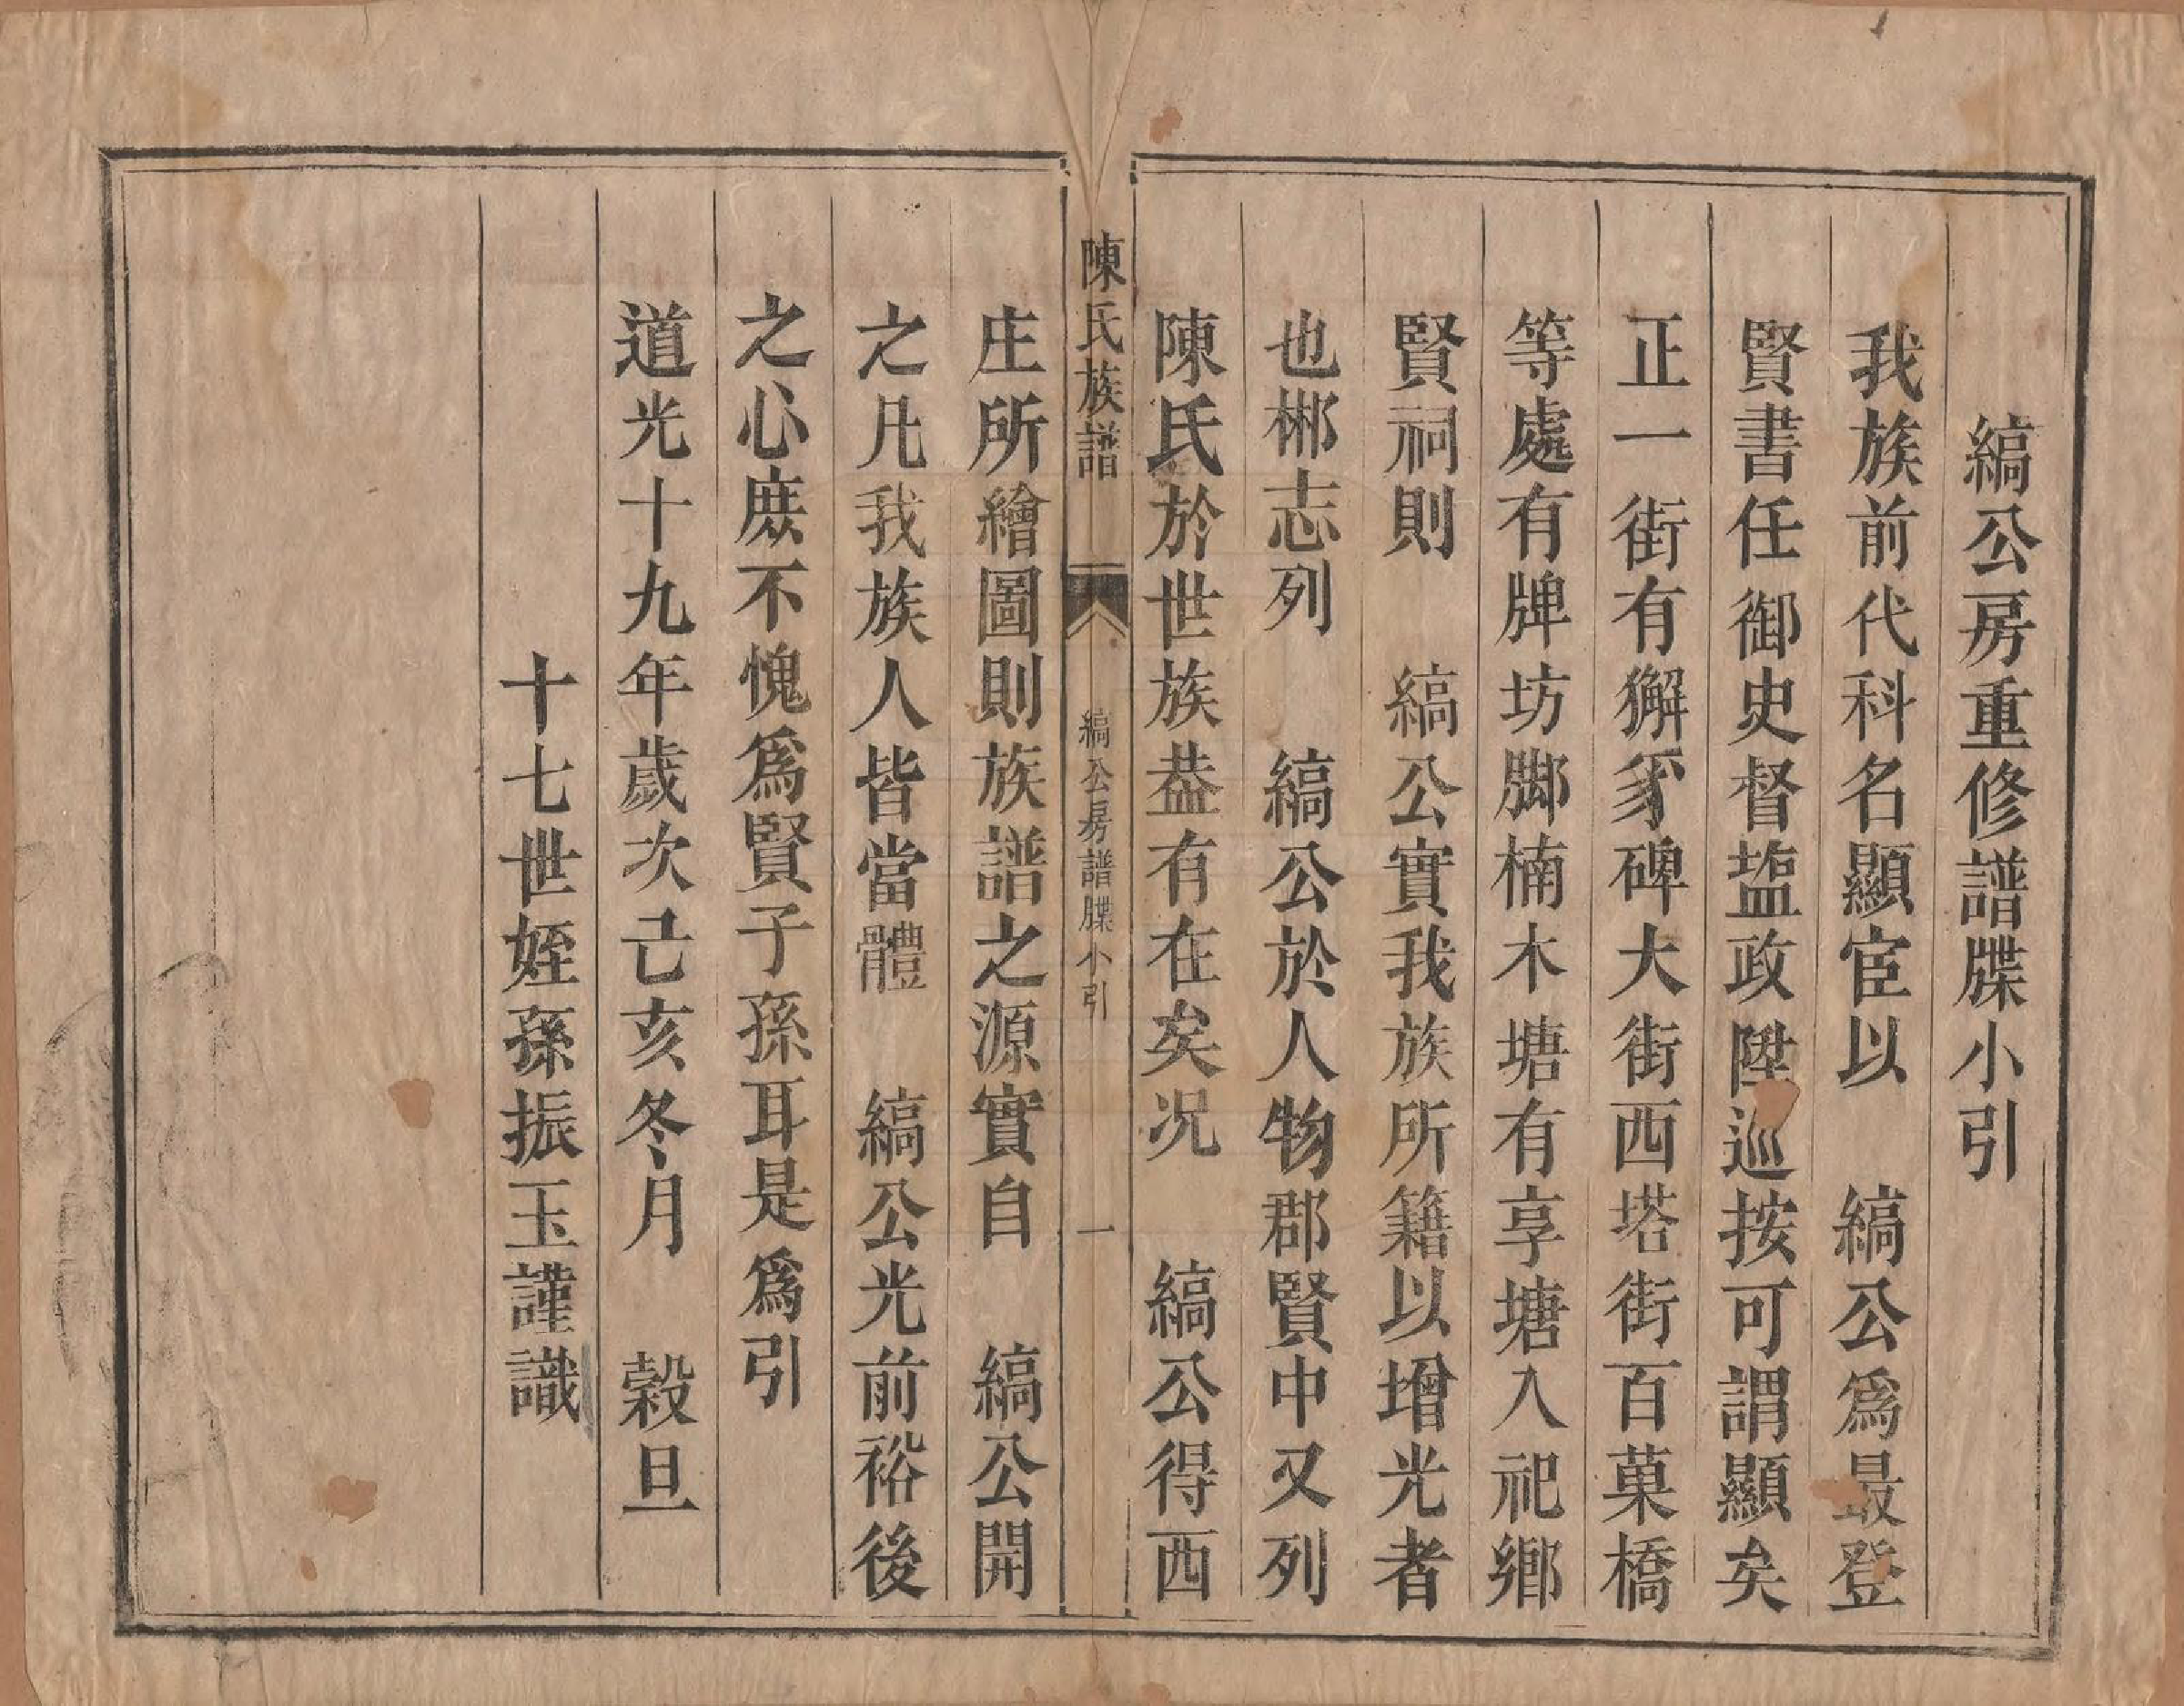 縞公房重修譜牒小引
我族前代科名顯宦以　縞公爲最登
賢書任御史督塩政陞巡按可謂顯矣
正一街有獬豸碑大街西塔街百菓橋
等處有牌坊脚楠木塘有享塘入祀鄉
賢祠則　縞公實我族所籍以增光者
也郴志列　縞公於人物郡賢中又列
陳氏於世族葢有在矣况　縞公得西
陳氏族譜
縞公房譜牒小引
一
庄所繪圖則族譜之源實自　縞公開
之凡我族人皆當體　縞公光前裕後
之心庶不愧爲賢子孫耳是爲引
道光十九年歲次己亥冬月　榖旦
十七世姪孫振玉謹識